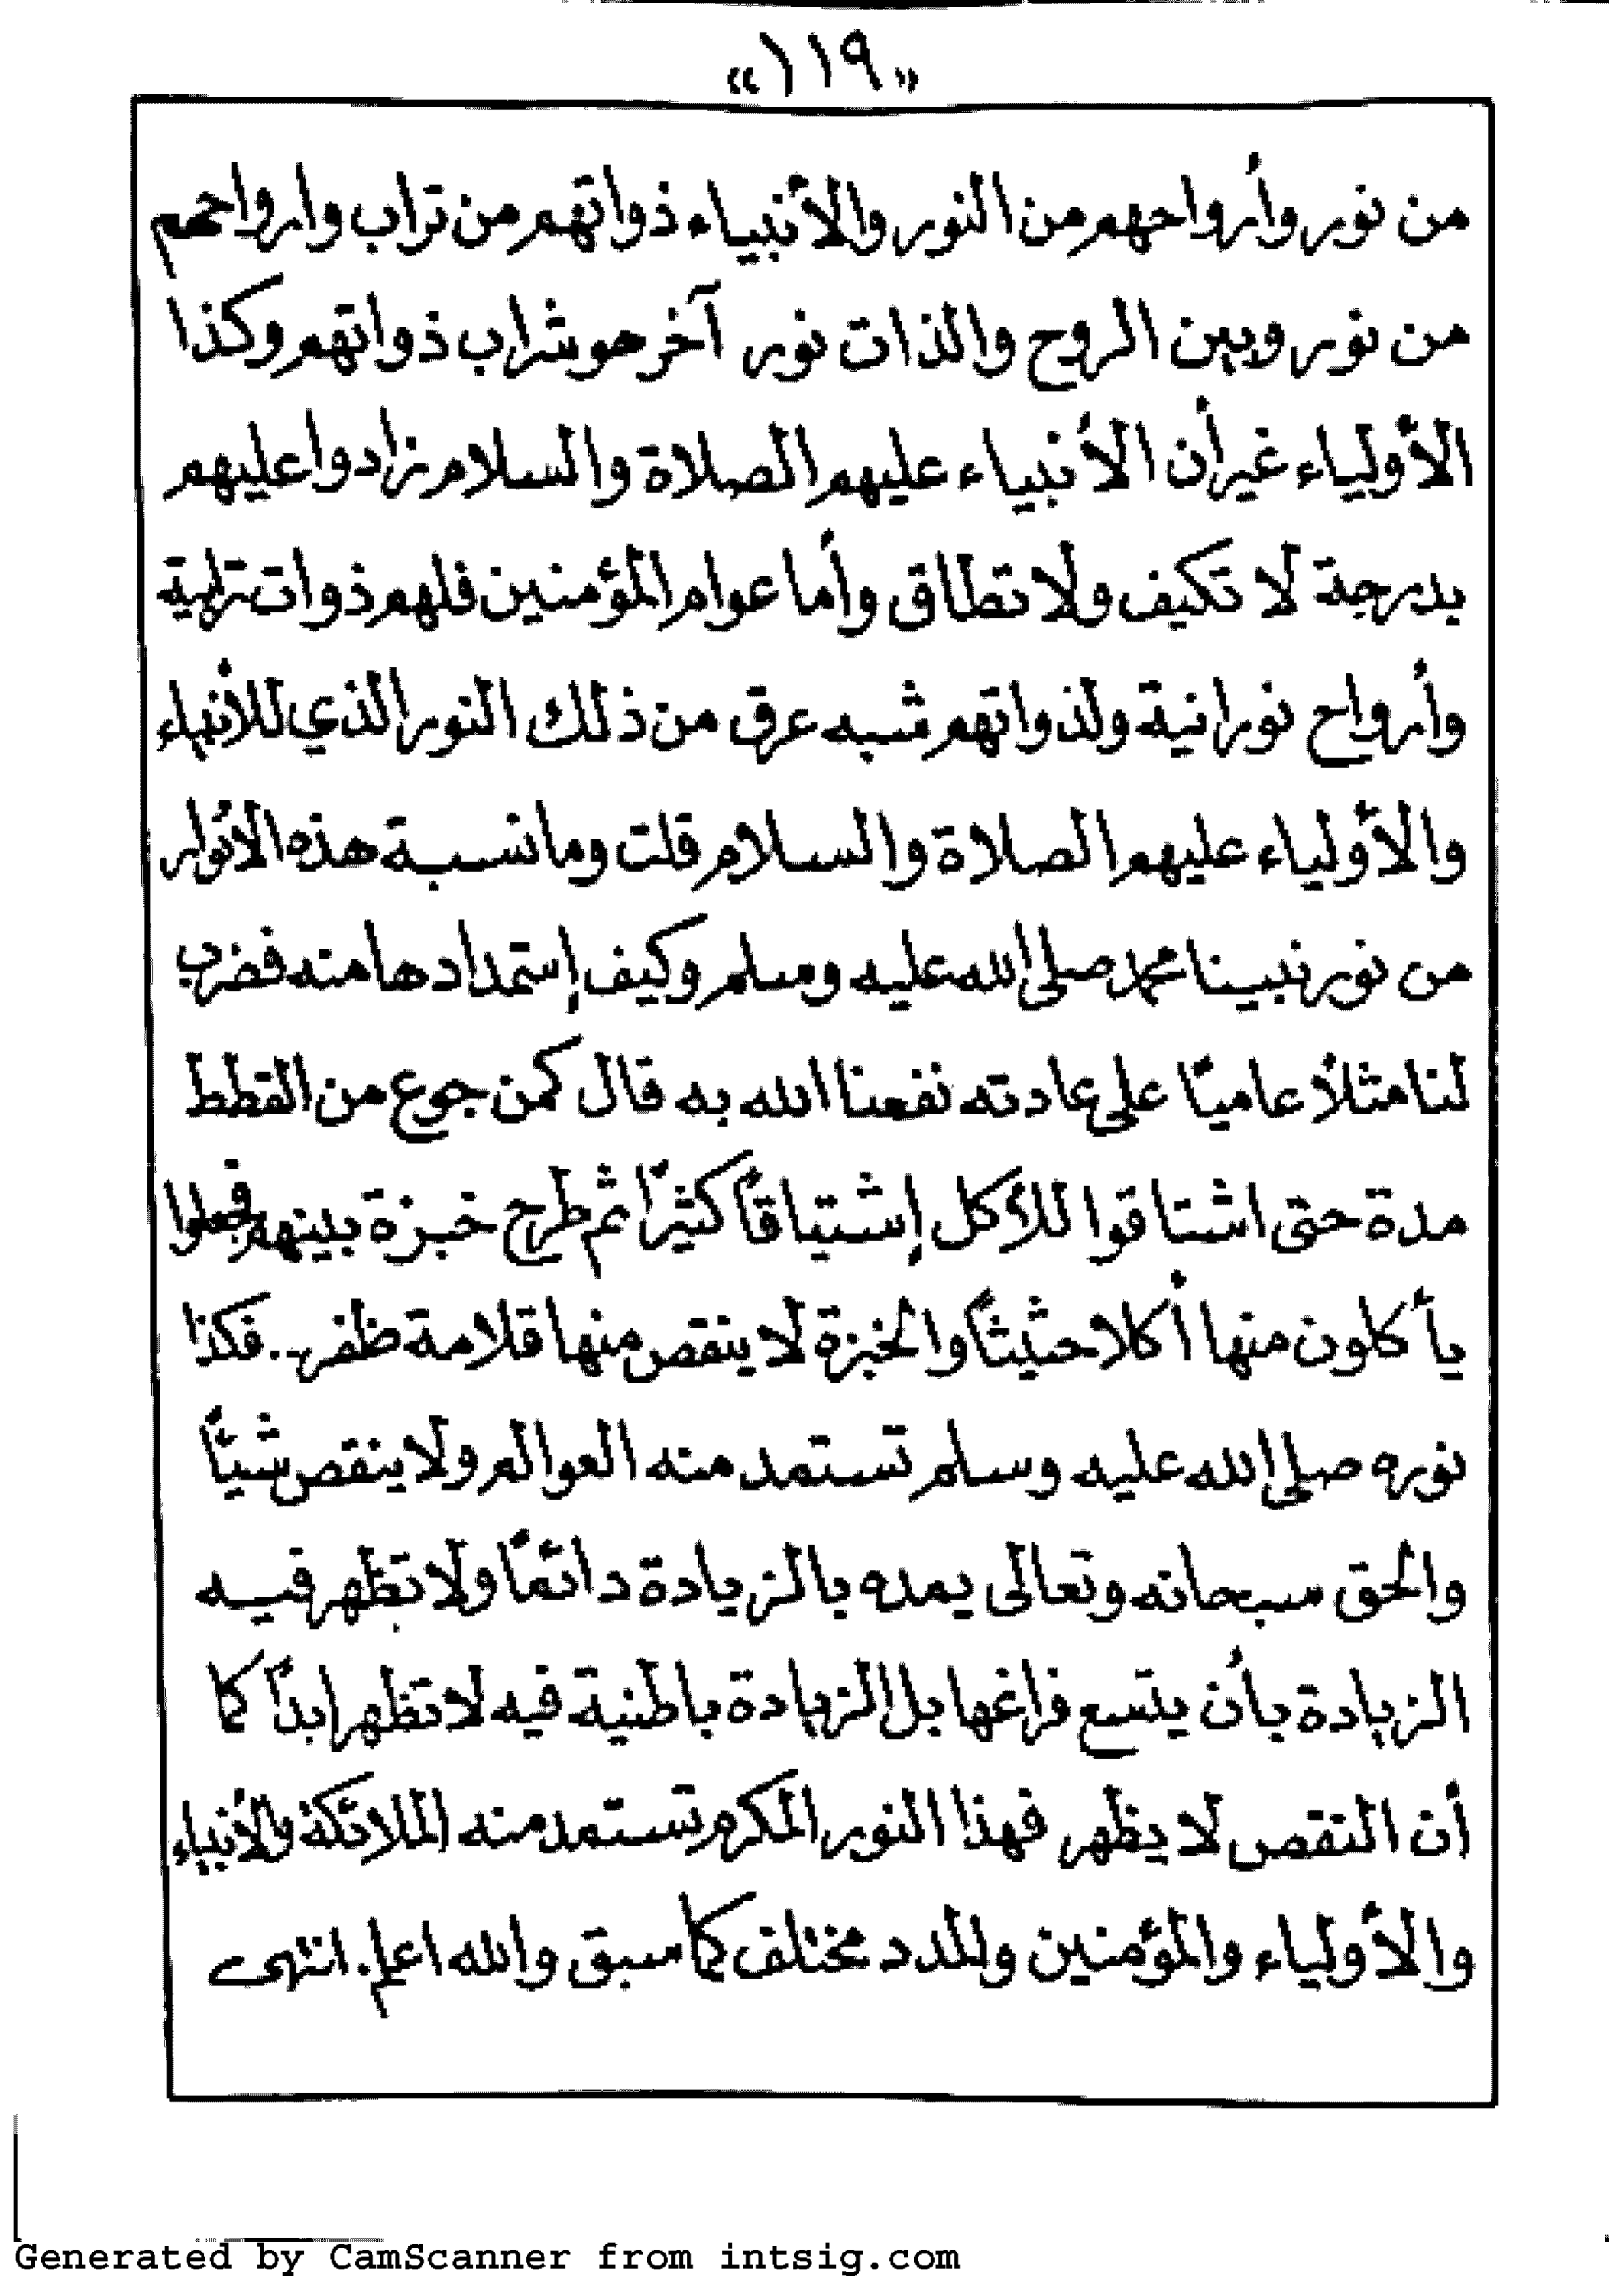 «١١٩»
من نور وأرواحهم من النور والأنبياء ذواتهم من تراب وارواحهم
من نور وبين الروح والذات نور آخر هو شراب ذواتهم وكذا
الأولياء غير أن الأنبياء عليهم الصلاة والسلام زادوا عليهم
بدرجة لا تكيف ولا تطاق وأما عوام المؤمنين فلهم ذوات ترابية
وأرواح نورانية ولذواتهم شبه عرق من ذلك النور الذي للأنبياء
والأولياء عليهم الصلاة والسلام قلت وما نسبة هذه الأنوار
من نور نبينا محمد صلى الله عليه وسلم وكيف إستمدادها منه فضرب
لنا مثلاً عاميًا على عادته نفعنا الله به قال كمن جوع من القطط
مدة حتى اشتاقوا للأكل إشتياقًا كثيرًا ثم طرح خبزة بينهم فجعلوا
يأكلون منها أكلا حثيثًا والخبزة لا ينقص منها قلامة ظفر.. فكذا
نوره صلى الله عليه وسلم تستمد منه العوالم ولا ينقص شيئًا
والحق سبحانه وتعالى يمده بالزيادة دائمًا ولا تظهر فيه
الزيادة بأن يتسع فراغها بل الزيادة باطنية فيه لا تظهر ابدًا كما
أن النقص لا يظهر فهذا النور المكرم تستمد منه الملائكة والأنبياء
والأولياء والمؤمنين والمدد مختلف كما سبق والله اعلم. انتهى
Generated by CamScanner from intsig.com